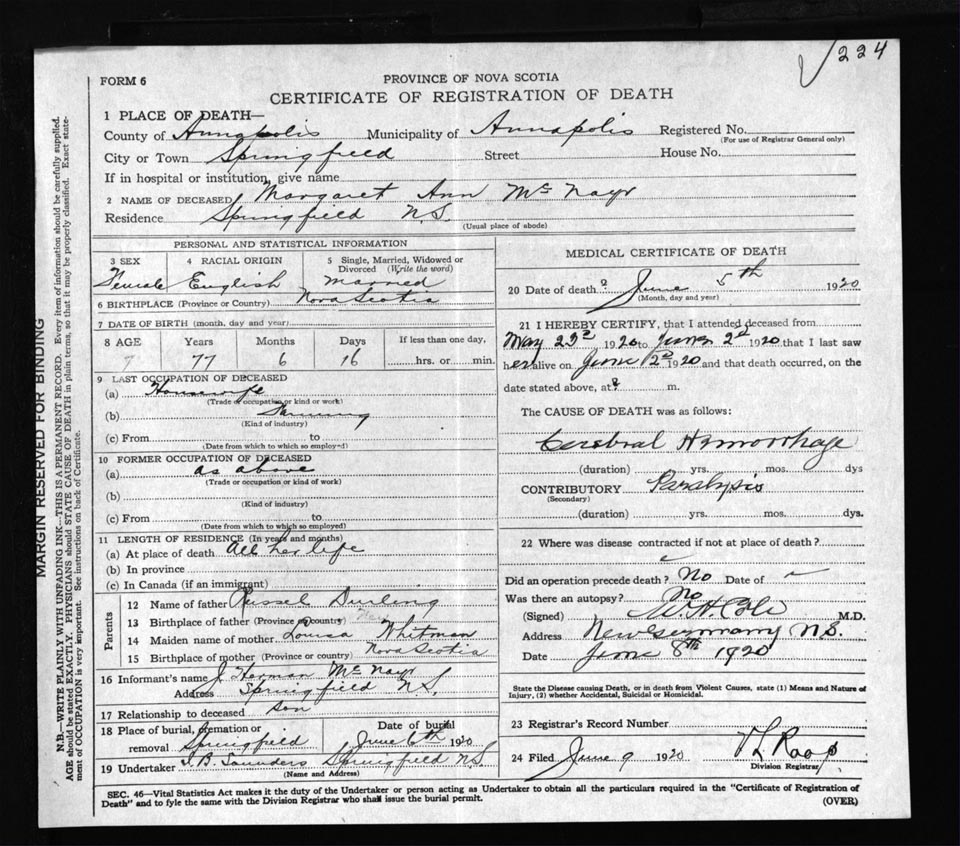 224
FORM 6
PROVINCE OF NOVA SCOTIA
CERTIFICATE OF REGISTRATION OF DEATH
1 PLACE OF DEATH—
County of Annapolis Municipality of Annapolis Registered No.
(For use of Registrar General only)
City or Town Springfield Street House No.
If in hospital or institution, give name
2 NAME OF DECEASED Margaret Ann McNayr
Residence Springfield N.S.
(Usual place of abode)
PERSONAL AND STATISTICAL INFORMATION
3 SEX 4 RACIAL ORIGIN 5 Single, Married, Widowed or Divorced (Write the word)
Female English Married
6 BIRTHPLACE (Province or Country) Nova Scotia
7 DATE OF BIRTH (month, day and year)
8 AGE Years Months Days If less than one day,
77 6 16 hrs. or min.
9 LAST OCCUPATION OF DECEASED
(a) Housewife
(Trade or occupation or kind or work)
(b) Farming
(Kind of industry)
(c) From to
(Date from which to which so employed)
10 FORMER OCCUPATION OF DECEASED
(a) as above
(Trade or occupation or kind of work)
(b)
(Kind of industry)
(c) From to
(Date from which to which so employed)
11 LENGTH OF RESIDENCE (In years and months)
(a) At place of death All her life
(b) In province
(c) In Canada (if an immigrant)
Parents
12 Name of father Durling
13 Birthplace of father (Province or country)
14 Maiden name of mother Louisa Whitman
15 Birthplace of mother (Province or country) Nova Scotia
16 Informant's name J. Herman McNayr
Address Springfield N.S.
17 Relationship to deceased son
18 Place of burial, cremation or removal Springfield Date of burial June 6th 1920
19 Undertaker I. B. Saunders Springfield N.S.
(Name and Address)
MEDICAL CERTIFICATE OF DEATH
20 Date of death? June 5th 1920
(Month, day and year)
21 I HEREBY CERTIFY, that I attended deceased from
May 23rd 1920 to June 2nd 1920 that I last saw
her alive on June 2nd 1920 and that death occurred, on the
date stated above, at? m.
The CAUSE OF DEATH was as follows:
Cerebral Hemorrhage
(duration) yrs. mos. dys
CONTRIBUTORY Paralysis
(Secondary)
(duration) yrs. mos. dys.
22 Where was disease contracted if not at place of death?
Did an operation precede death? No Date of
Was there an autopsy? No
(Signed) W. H. Cole M.D.
Address New Germany N.S.
Date June 8th 1920
State the Disease causing Death, or in death from Violent Causes, state (1) Means and Nature of
Injury, (2) whether Accidental, Suicidal or Homicidal.
23 Registrar's Record Number
24 Filed June 9 1920 Roop
Division Registrar
SEC. 46—Vital Statistics Act makes it the duty of the Undertaker or person acting as Undertaker to obtain all the particulars required in the "Certificate of Registration of
Death" and to fyle the same with the Division Registrar who shall issue the burial permit.
(OVER)
MARGIN RESERVED FOR BINDING
N.B.—WRITE PLAINLY WITH UNFADING INK—THIS IS A PERMANENT RECORD. Every item of information should be carefully supplied.
AGE should be stated EXACTLY. PHYSICIANS should STATE CAUSE OF DEATH in plain terms, so that it may be properly classified. Exact state-
ment of OCCUPATION is very important. See instructions on back of Certificate.